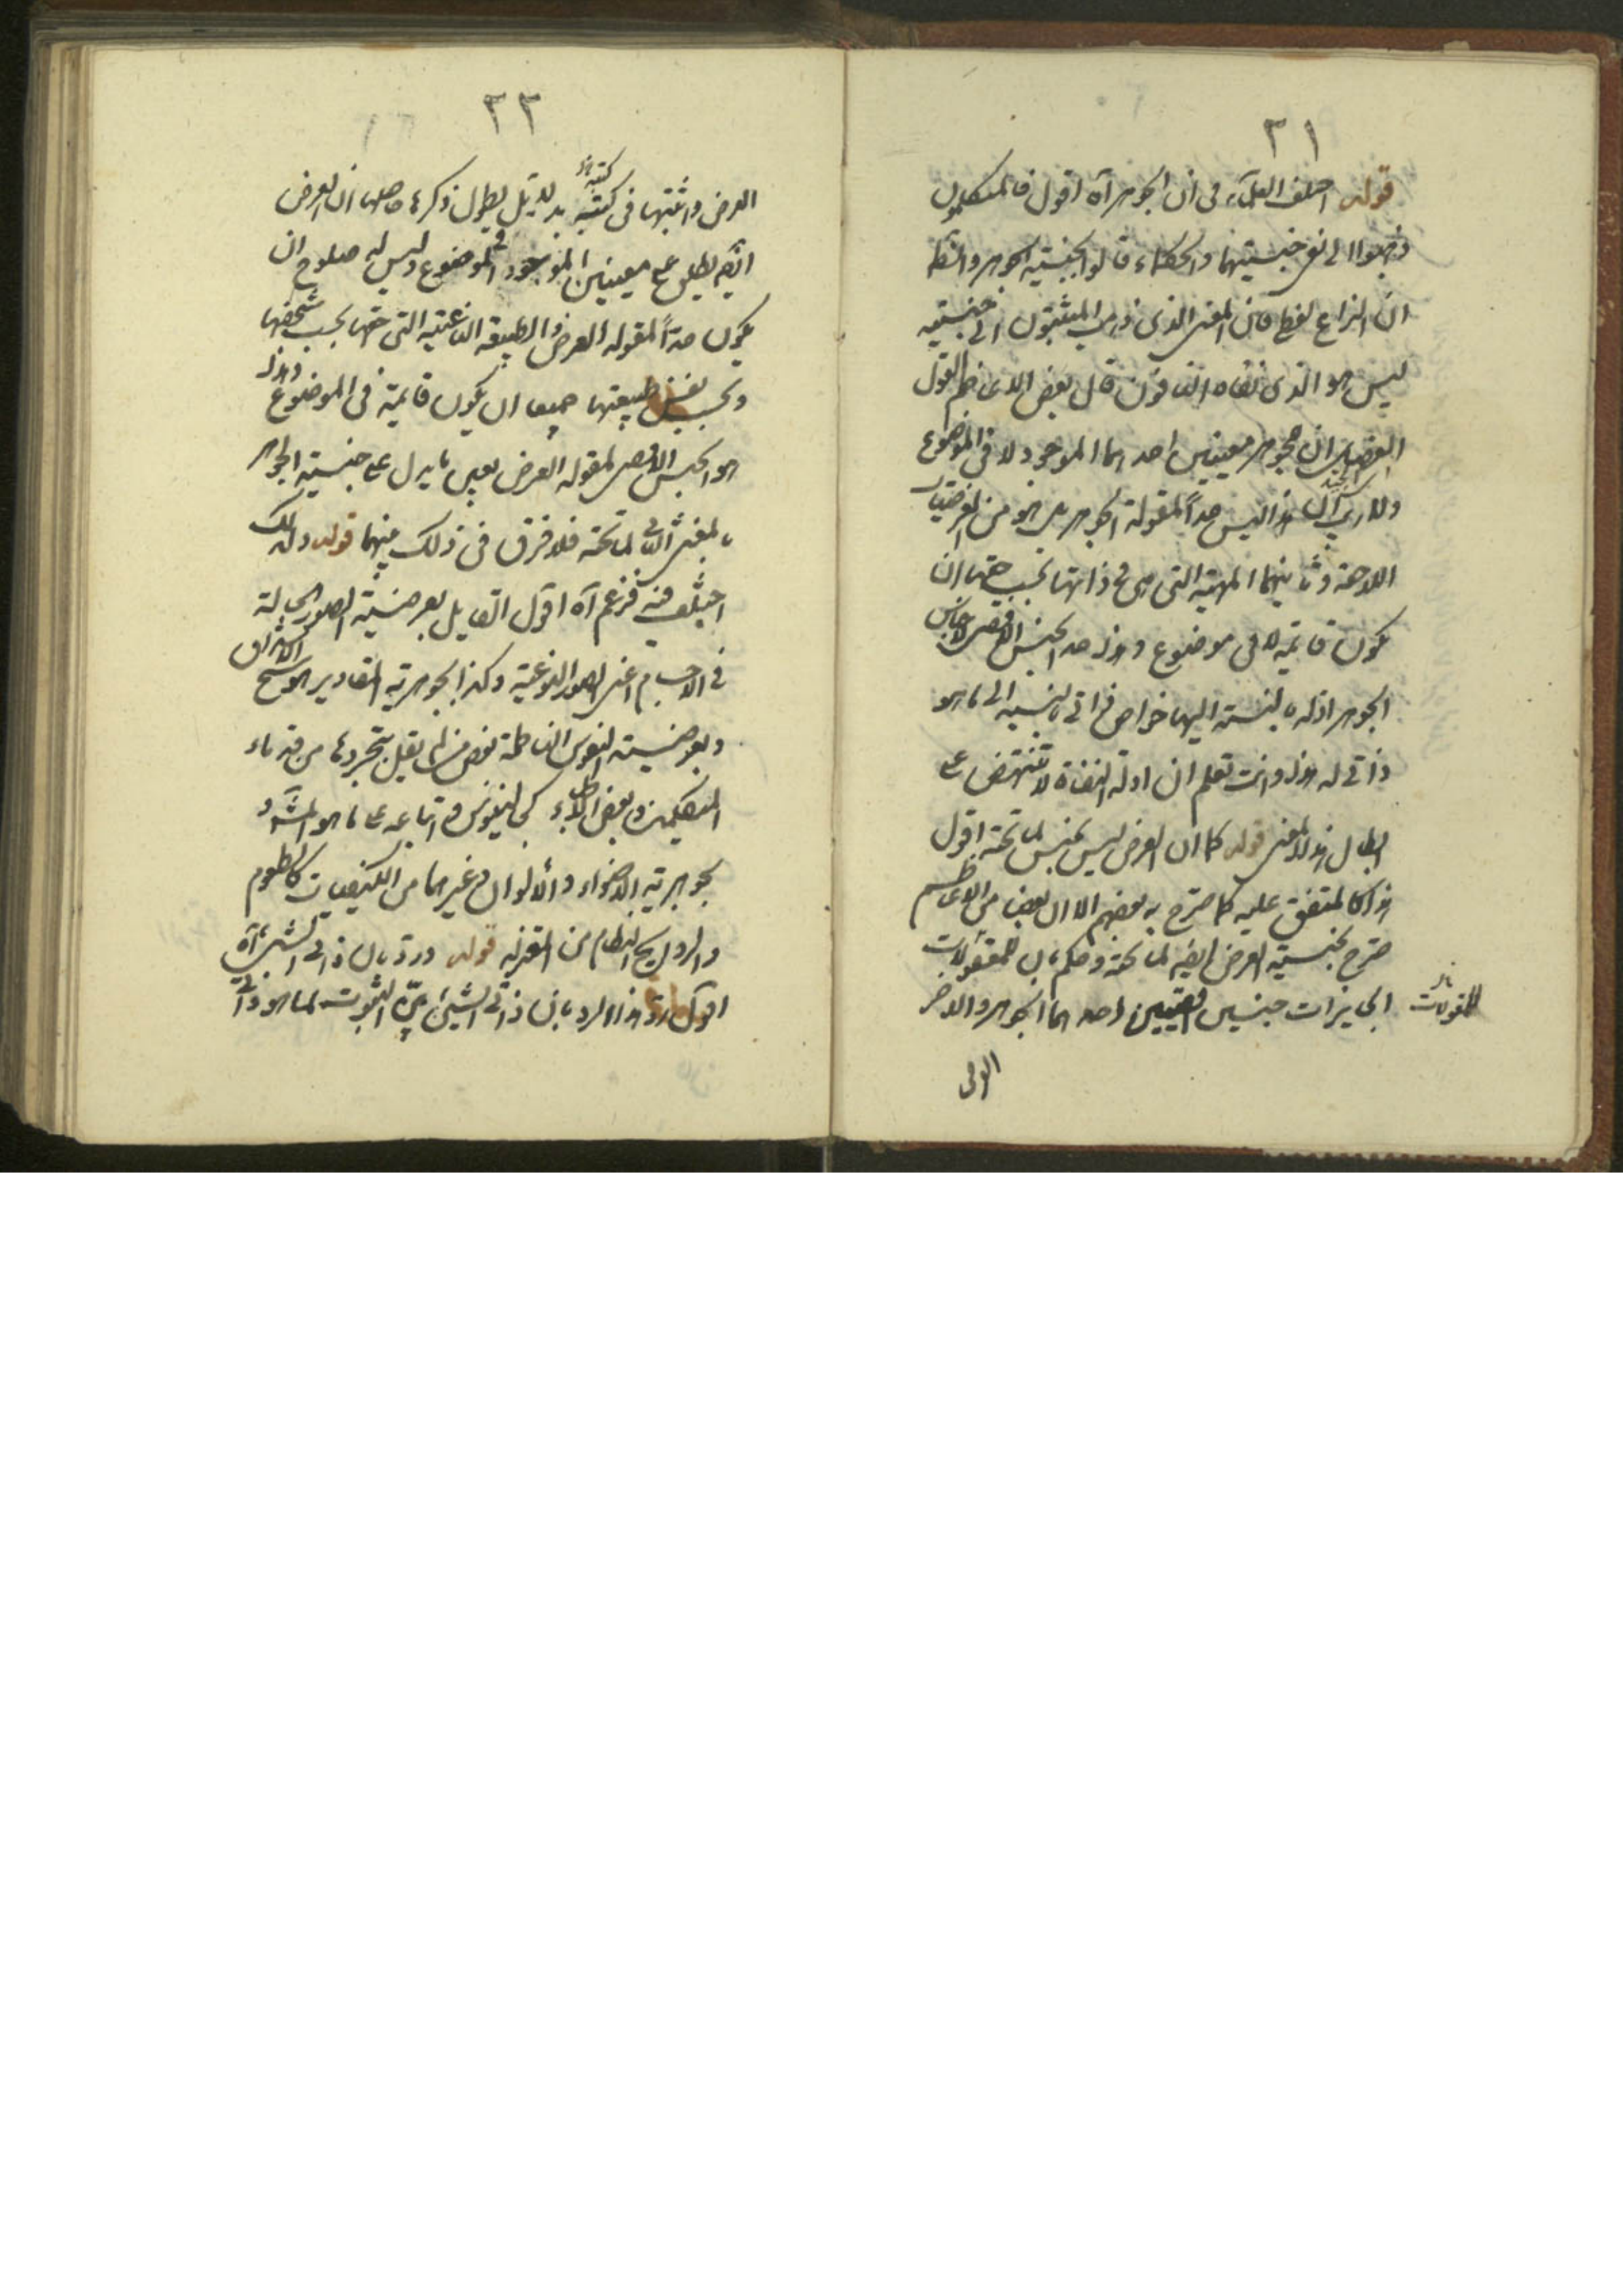 ٣١
قوله اختلف العلماء فى ان الجوهر آه اقول فالمتكلمون
ذهبوا الى نفى جنسيتهما والحكماء قالوا بجنسية الجوهر والظ
ان النزاع لفظى فان المعنى الذى ذهب المثبتون الى جنسيته
ليس هو الذى نفاه النافون قال بعض الاعاظم القول
ان للجوهر معنيين احدهما الموجود لا فى الموضوع
ولا ريب ان هذا ليس حداً لمقولة الجوهر بل هو من العرضيات
اللاحقة وثانيهما المهية التى هى فى ذاتها بحسب حقها ان
يكون قائمة لا فى موضوع وهذا حد الجنس الاقصى لاجناس
الجوهر اذ له بالنسبة اليها خواص ذاتى بالنسبة الى ما هو
ذاتى له هذا وانت تعلم ان ادلة النفاة لا تنتهض على
ابطال هذا المعنى قوله كما ان العرض ليس بجنس لما تحته اقول
هذا كالمتفق عليه كما صرح به بعضهم الا ان بعضا من الاعاظم
صرح بجنسية العرض ايضا لما تحته وحكم بان للمقولات
للمقولات
الجايزات جنسين اقصيين احدهما الجوهر والاخر
العرض
٣٢
العرض واثبتها فى كتبه بدلايل يطول ذكرها حاصلها ان العرض
ايضا يطلق على معنيين الموجود فى الموضوع وليس له صلوح ان
يكون حداً لمقولة العرض والطبيعة الناعتية التى حقها بحسب تشخصها
وبحسب نفس طبيعتها جميعا ان يكون قائمة فى الموضوع وهذا
هو الجنس الاقصى لمقولة العرض بعين ما يدل على جنسية الجوهر
بالمعنى الثانى لما تحته فلا فرق فى ذلك بينهما قوله ولذلك
اختلف فيه فزعم آه اقول القايل بعرضية الصور الحالة
فى الاجسام اعنى الصور النوعية وكذا بجوهرية المقادير هو شيخ الاشراق
وبعرضية النفوس الناطقة بعض من لم يقل بتجردها من قدماء
المتكلمين وبعض الاطباء كجالينوس واتباعه على ما هو المشهور
بجوهرية الاضواء والالوان وغيرهما من الكيفيات كالطعوم
والروايح النظام من المعتزلة قوله ورد بان ذاتى الشىء آه
اقول رد هذا الرد بان ذاتى الشىء بين الثبوت لما هو ذاتى